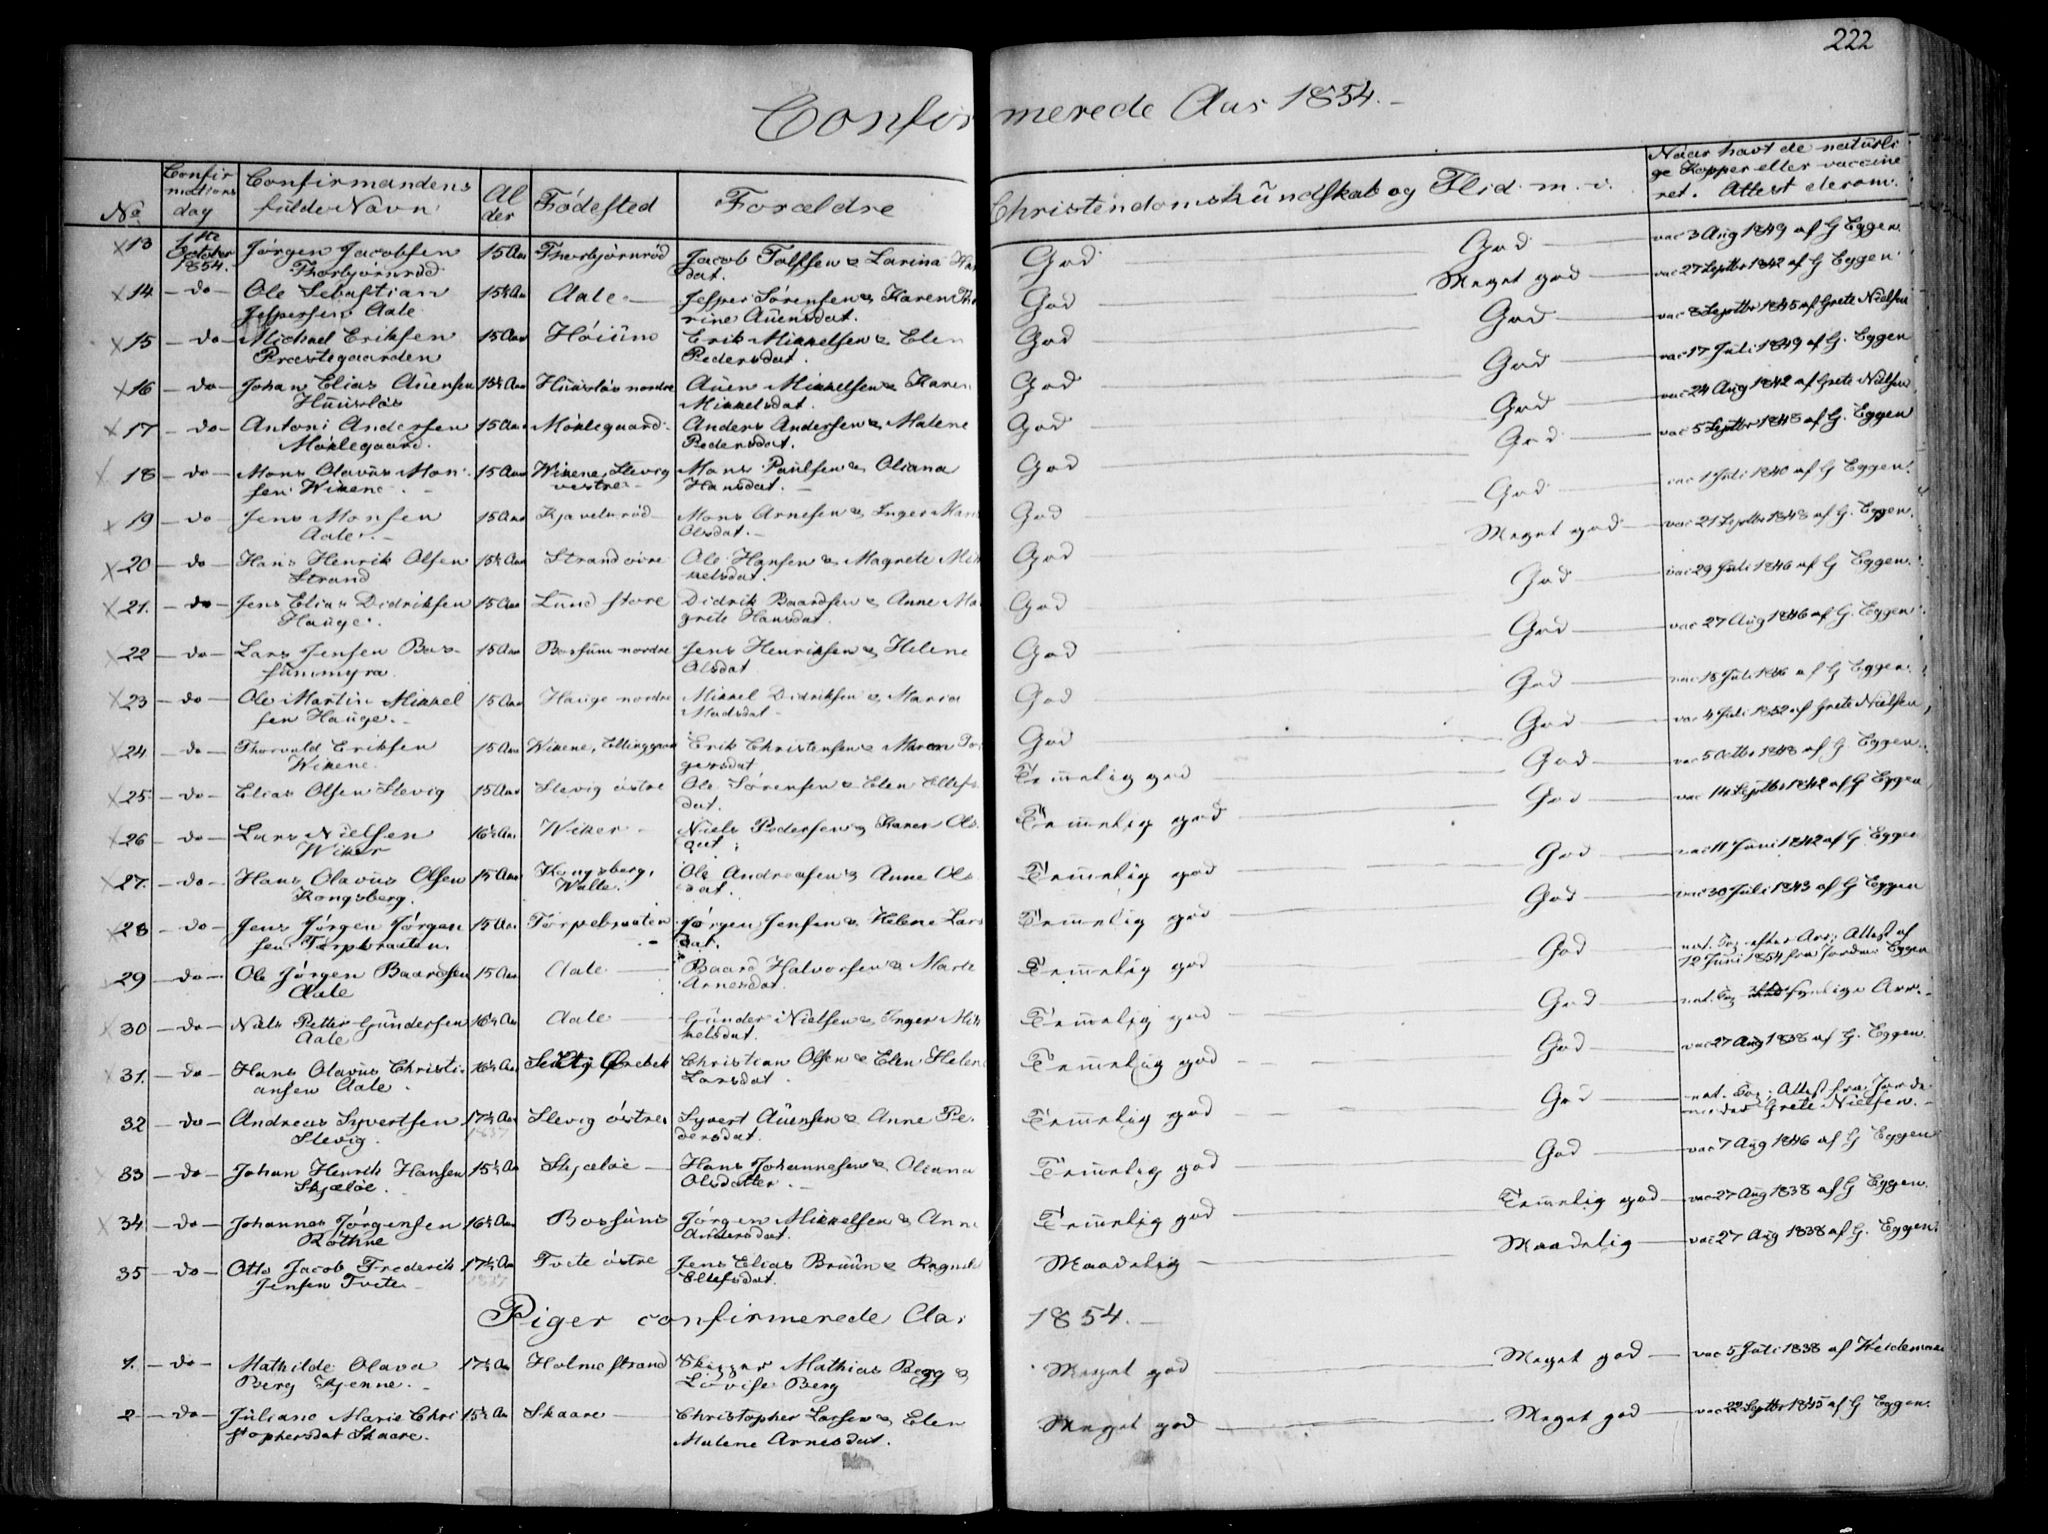 222
Confirmerede Aar 1854.
No
Confirmations dag
Confirmandens fulde Navn
Alder
Fødested
Forældre
Christendomskundskab og Flid m. v.
Naar havt de naturlige Kopper eller vaccineret. Attest derom.
13 1ste October 1854. Jørgen Jacobsen Thorbjørnrød 15 Aar Thorbjørnrød Jacob Tolfsen & Larina dat. God God vac 3 Aug 1849 af G Eggen
14 do Ole Sebastian Jespersen Aale 15½ Aar Aale Jesper Sørensen & Karen rine Auensdat. God Meget god vac 27 Septbr 1842 af G Eggen
15 do Michael Eriksen Præstegaarden 15 Aar Høiüm Erik Mikkelsen & Elen Pedersdat. God God vac 8 Septbr 1845 af Grete Nielsen
16 do Johan Elias Auensen Huusløs 15½ Aar Huusløs nordre Auen Mikkelsen & Karen Mikkelsdat. God God vac 17 Juli 1849 af G. Eggen
17 do Antoni Andersen Møklegaard 15 Aar Møklegaard Anders Andersen & Malene Pedersdat. God God vac 24 Aug 1842 af Grete Nielsen
18 do Mons Olavüs Monsen Wikene 15 Aar Wikene, Slevig vestre Mons Paulsen & Oliana Hansdat. God God vac 5 Septbr 1848 af G. Eggen
19 do Jens Monsen Aale 15 Aar Kjavelsrød Mons Arnesen & Inger Olsdat. God God vac 1 Juli 1840 af G Eggen
20 do Hans Henrik Olsen Strand 15½ Aar Strand øvre Ole Hansen & Magrete kelsdat. God Meget god vac 21 Septbr 1848 af G. Eggen
21. do Jens Elias Didriksen Hauge 15 Aar Lund store Didrik Baardsen & Anne Ma grete Hansdat. God God vac 29 Juli 1846 af G Eggen
22 do Lars Jensen Bossummyra 15 Aar Bossum nordre Jens Henriksen & Helene Olsdat God God vac 27 Aug 1846 af G. Eggen
23 do Ole Martin Mikkelsen Hauge 15 Aar Hauge nordre Mikkel Didriksen & Maria Madsdat God God vac 18 Juli 1846 af G Eggen
24 do Thorvald Eriksen Wikene 15 Aar Wikene, Ellinggaard Erik Christensen & Maren gersdat God God vac 4 Juli 1852 af Grete Nielsen
25 do Elias Olsen Slevig 15 Aar Slevig østre Ole Sørensen & Elen Ellefs dat. Temmelig god God vac 5 Octbr 1848 af G. Eggen
26 do Lars Nielsen Wiker 16½ Aar Wiker Niels Pedersen & Karen Ols dat. Temmelig god God vac 14 Septbr 1842 af G Eggen
27. do Hans Olavüs Olsen Kongsberg. 15 Aar Kongsberg, Walle. Ole Andreasen & Anne Ols dat. Temmelig god God vac 11 Juni 1842 af G Eggen
28 do Jens Jørgen Jørgensen Torpebraaten. 15 Aar Torpebraaten Jørgen Jensen & Helene Lars dat. Temmelig god God vac 30 Juli 1843 af G Eggen
29 do Ole Jørgen Baardsen Aale 15 Aar Aale Baard Halvorsen & Marte Arnesdat. Temmelig god God nat. efter Arr; Attest af 12 Juni 1854 fra Eggen
30 do Niels Petter Gundersen Aale 16½ Aar Aale Gunder Nielsen & Inger kelsdat. Temmelig god God nat. synlige Arr.
31. do Hans Olavüs Christiansen Aale 16½ Aar Ørebek Christian Olsen & Elen Helene Larsdat. Temmelig god God vac 27 Aug 1838 af G. Eggen
32 do Andreas Syvertsen Slevig. 17½ Aar 1837 Slevig østre Syvert Auensen & Anne Pedersdat. Temmelig god God nat. Attest fra Jordemoder Grete Nielsen.
33 do Johan Henrik Hansen Skjæløe 15½ Aar Skjæløe Hans Johannesen & Oliana Olsdatter. Temmelig god God vac 7 Aug 1846 af G Eggen
34. do Johannes Jørgensen Röthne 16½ Aar Bossum Jørgen Mikkelsen & Anne Andersdat. Temmelig god Temmelig god vac 27 Aug 1838 af G Eggen.
35 do Otto Jacob Frederik Jensen Tvete 17½ Aar 1837 Tvete østre Jens Elias Bruun & Ragnild Ellefsdat. Maadelig Maadelig vac 27 Aug 1838 af G. Eggen
Piger confirmerede Aar 1854.
1. do Mathilde Olava Berg Kjenne. 17½ Aar Holmestrand Skipper Mathias Berg & Lovise Berg Meget god Meget god vac 5 Juli 1838 af Heideman
2 do Juliane Marie Christophersdat Skaare. 15½ Aar Skaare Christopher Larsen & Elen Malene Arnesdat. Meget god Meget god vac 22 Septbr 1845 af G Eggen.